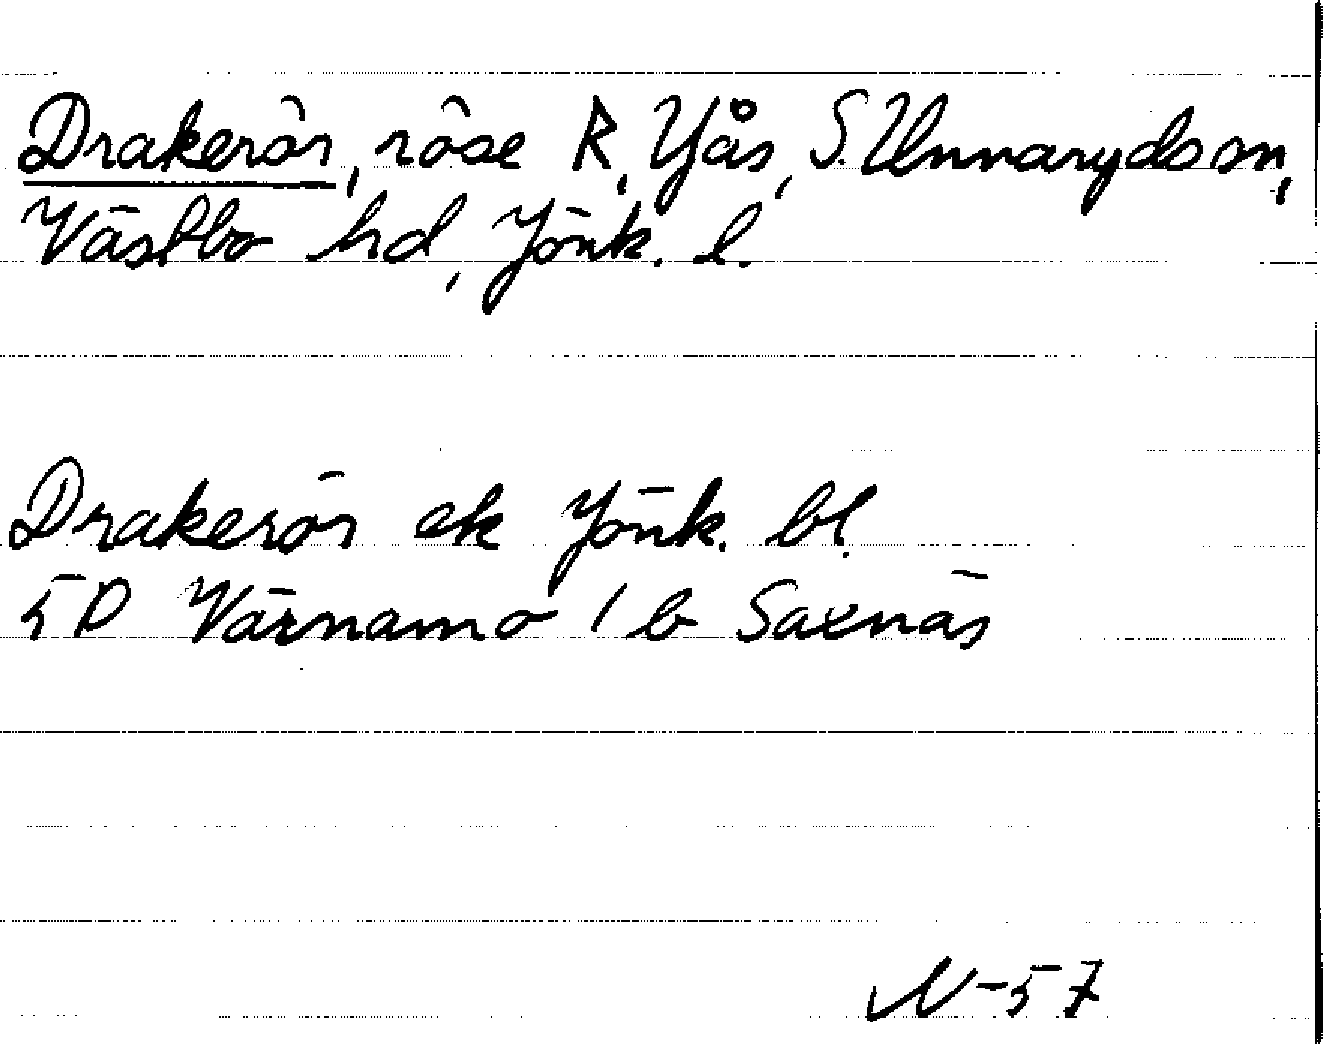 Drakerör, röse R, Yås, S. Unnaryds sn,
Västbo hd, Jönk. l.
Drakerör ek Jönk. bl.
5D Värnamo 1 b Saxnäs
N-57